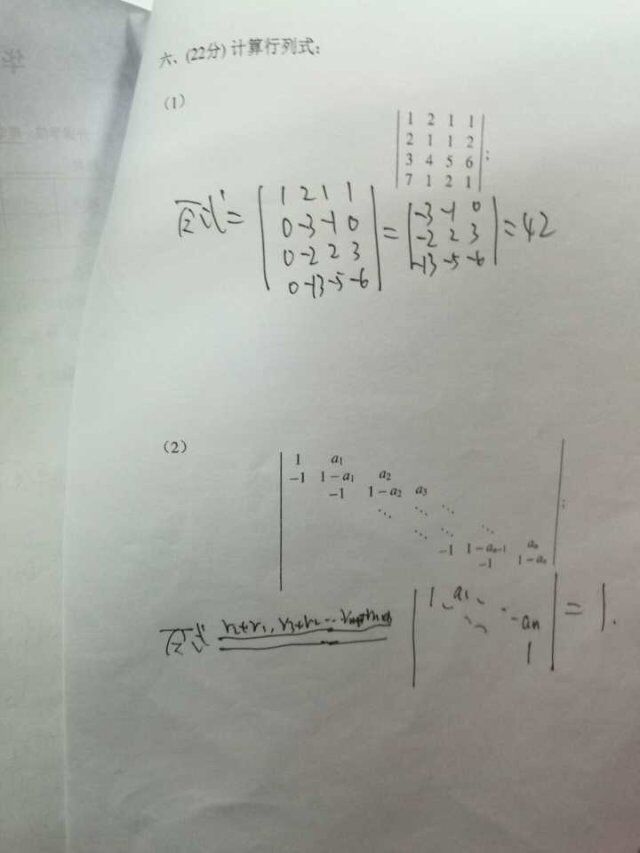 六、(22分) 计算行列式:
(1)
1 2 1 1
2 1 1 2
3 4 5 6
7 1 2 1
;
原式 = | 1 2 1 1 | = | -3 -1 0 | = 42
0 -3 -1 0 -2 2 3
0 -2 2 3 -13 -5 -6
0 -13 -5 -6
(2)
1 a₁
-1 1-a₁ a₂
-1 1-a₂ a₃ ⋱
⋱ ⋱ ⋱
⋱ -1 1-aₙ₋₁ aₙ
-1 1-aₙ
;
原式 r₂+r₁, r₃+r₂ ... | 1 a₁ ⋱ aₙ | = 1.
1